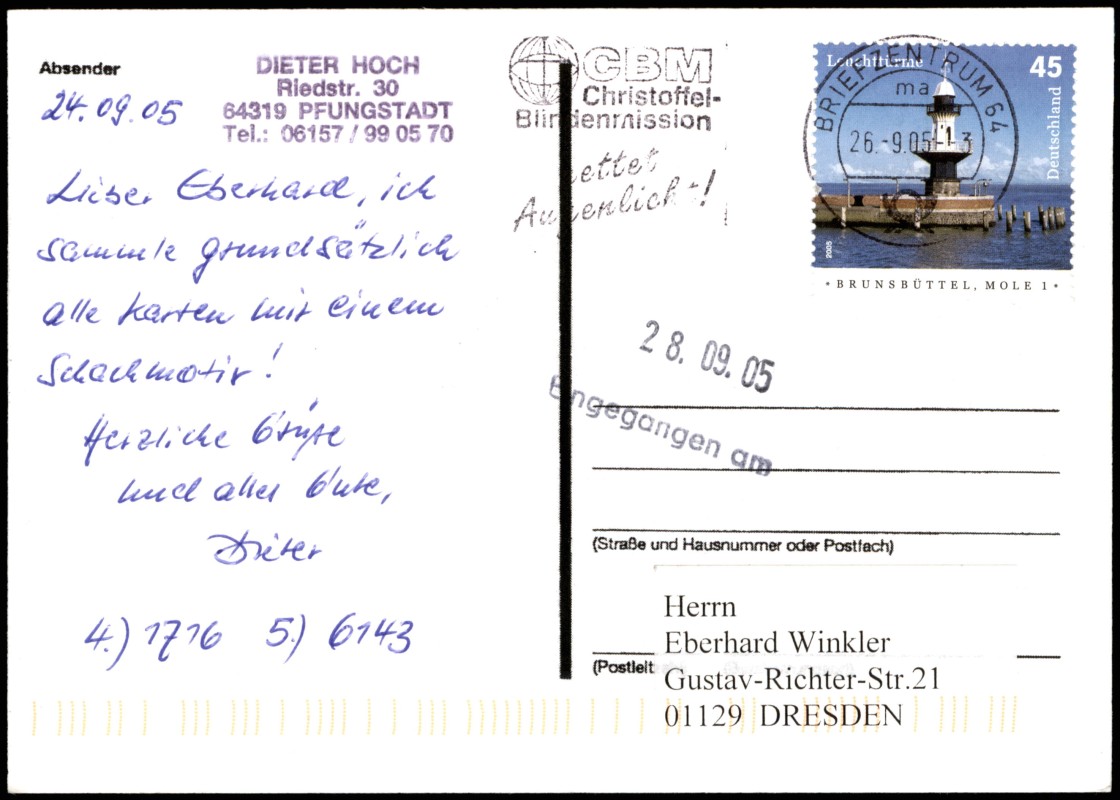 Absender
24.09.05
DIETER HOCH
Riedstr. 30
64319 PFUNGSTADT
Tel.: 06157 / 99 05 70
Lieber Eberhard, ich
sammle grundsätzlich
alle Karten mit einem
Schachmotiv!
Herzliche Grüße
und alles Gute,
Dieter
4.) 1716 5.) 6143
CBM
Christoffel-
Blindenmission
rettet
Augenlicht!
Leuchttürme
45
Deutschland
2005
BRUNSBÜTTEL, MOLE 1
BRIEFZENTRUM 64
ma
26.-9.05-13
28.09.05
Eingegangen am
(Straße und Hausnummer oder Postfach)
(Postleit
Herrn
Eberhard Winkler
Gustav-Richter-Str.21
01129 DRESDEN